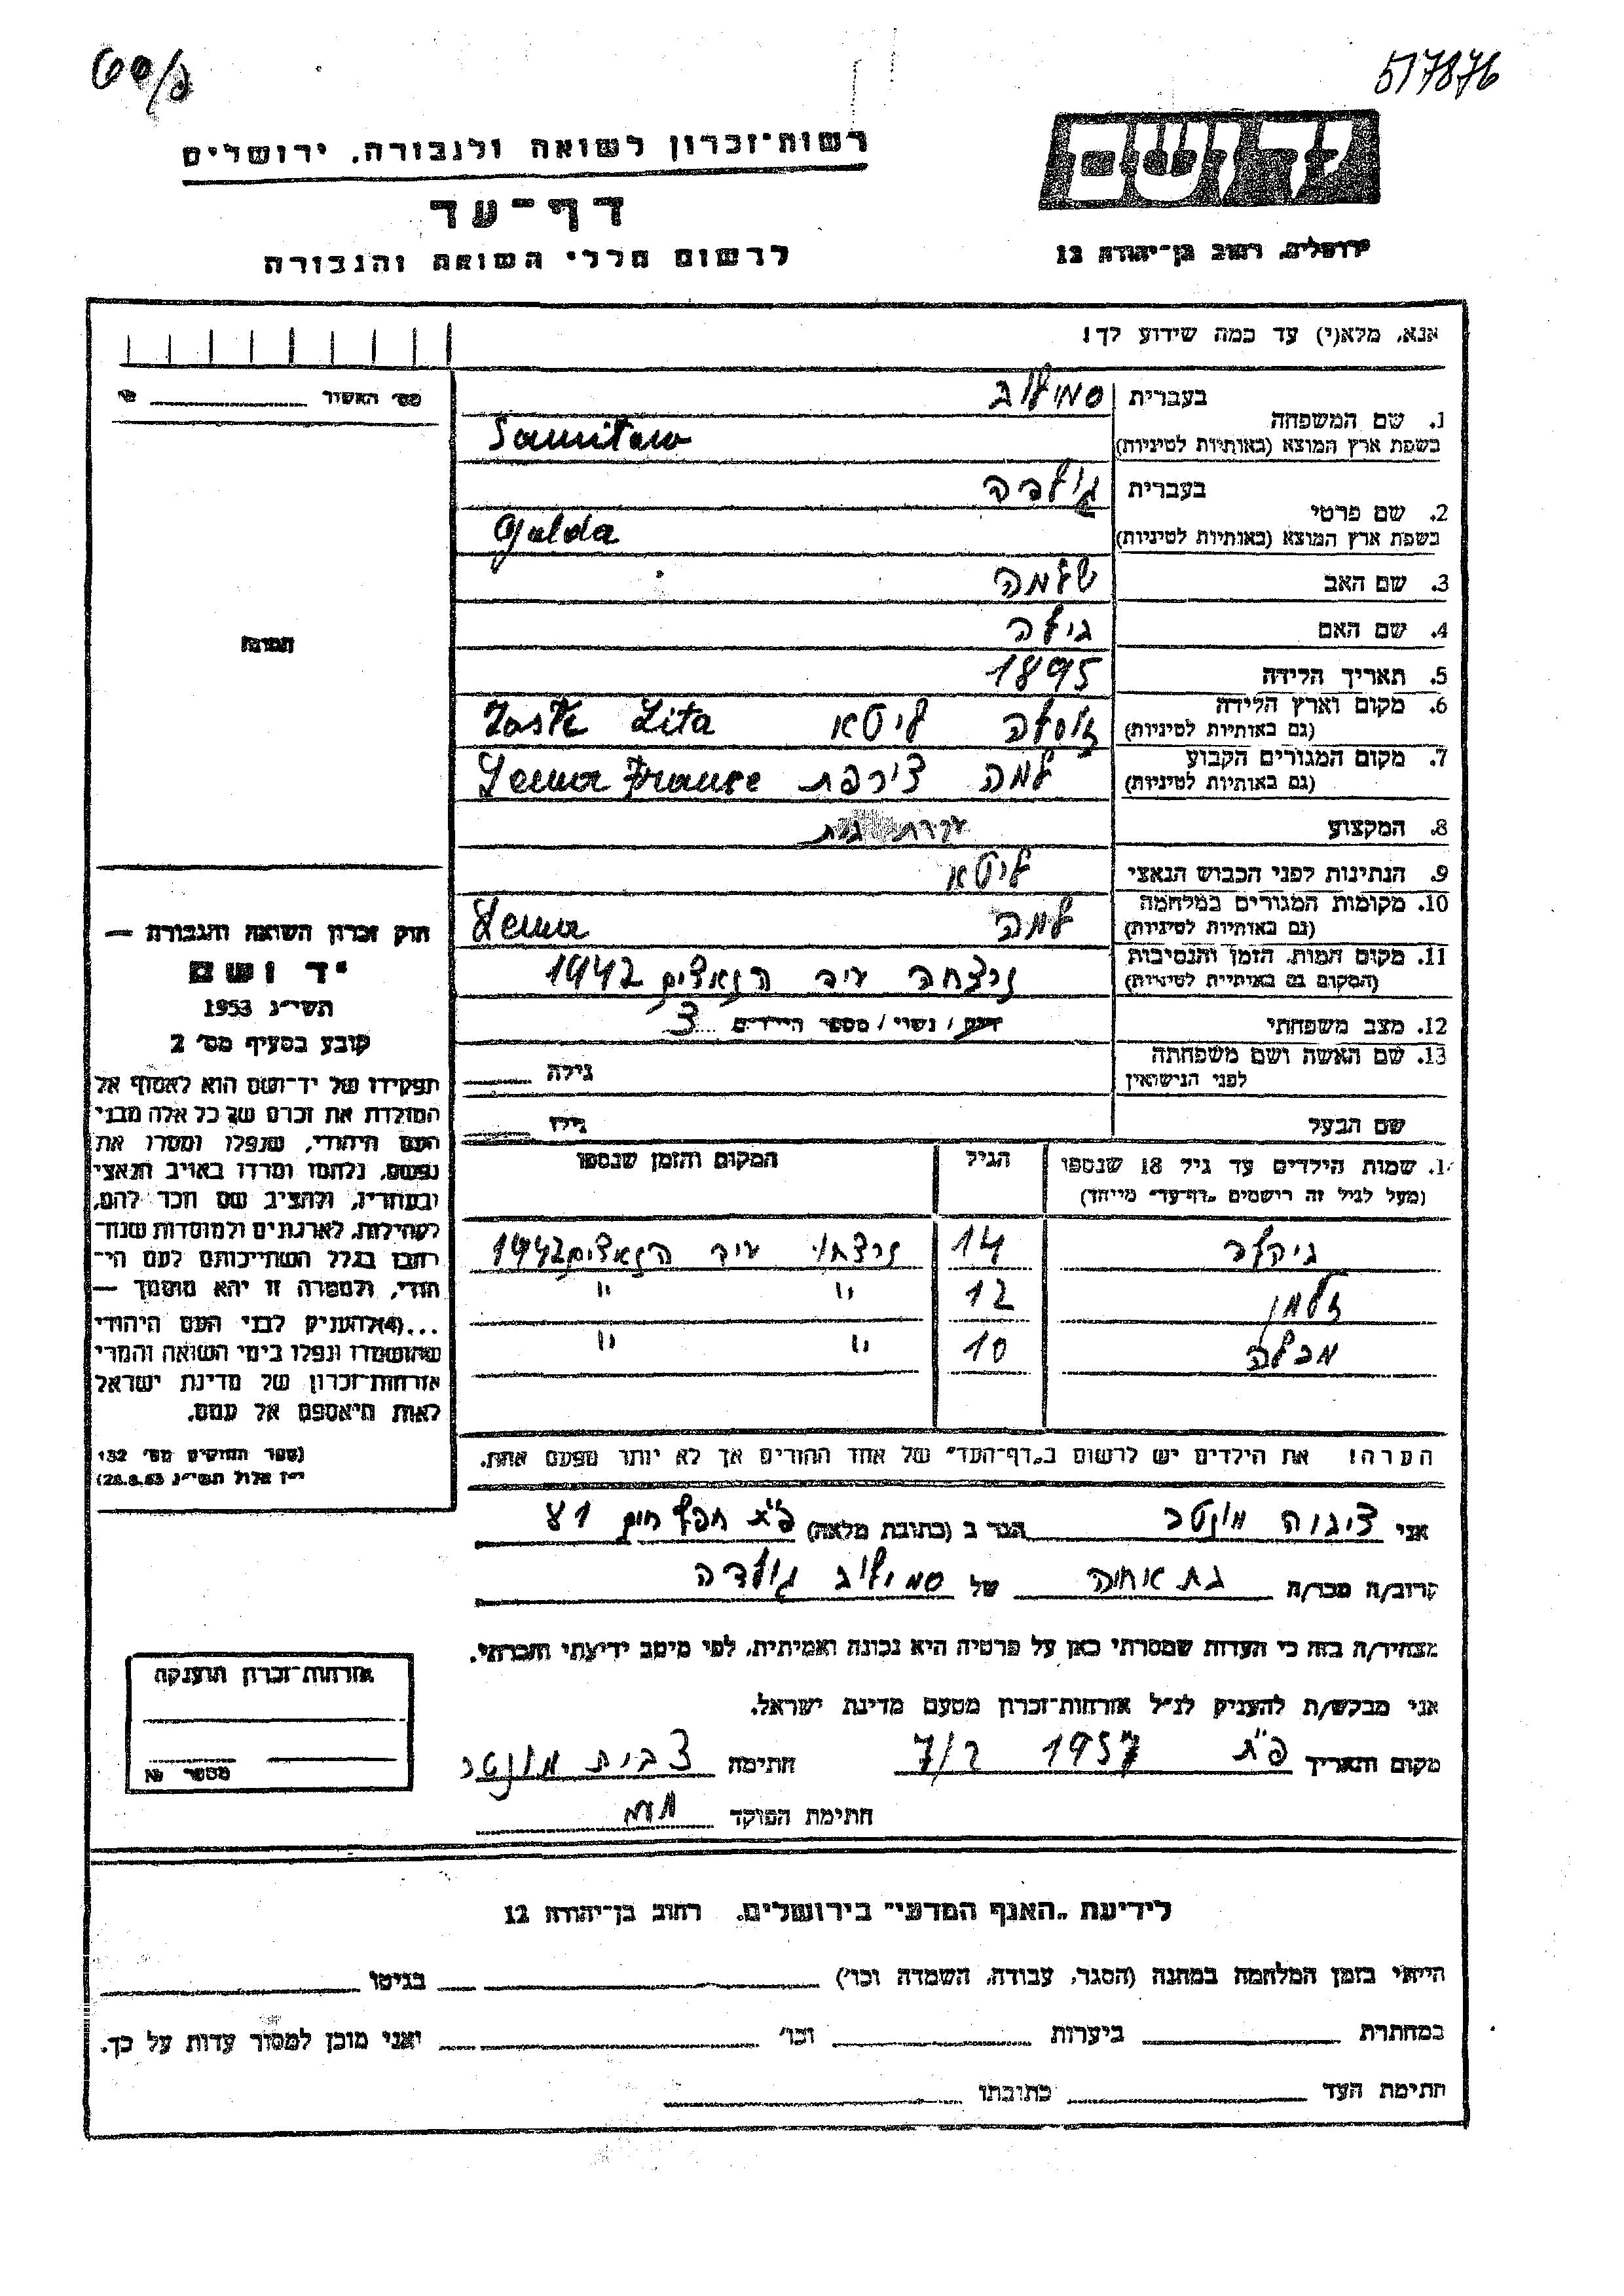 517876
רשות־זכרון לשואה ולגבורה, ירושלים
יד ושם
דף־עד
ירושלים, רחוב בן־יהודה 12
לרשום חללי השואה והגבורה
אנא, מלא(י) עד כמה שידוע לך!
מס׳ האשור
1. שם המשפחה
בעברית
בשפת ארץ המוצא (באותיות לטיניות)
Samitow
2. שם פרטי
בעברית
גולדה
בשפת ארץ המוצא (באותיות לטיניות)
Golda
3. שם האב שלמה
4. שם האם גילה
5. תאריך הלידה 1895
6. מקום וארץ הלידה
(גם באותיות לטיניות)
ליטא Lita
7. מקום המגורים הקבוע
(גם באותיות לטיניות)
צירפת
8. המקצוע עקרת בית
9. הנתינות לפני הכבוש הנאצי ליטא
10. מקומות המגורים במלחמה
(גם באותיות לטיניות)
למה
11. מקום המות, הזמן והנסיבות
(המקום גם באותיות לטיניות)
נרצחה ע״י הנאצים 1942
12. מצב משפחתי רווק / נשוי / מספר הילדים 3
13. שם האשה ושם משפחתה
לפני הנישואין
גילה
שם הבעל גילו
שמות הילדים עד גיל 18 שנספו
(מעל לגיל זה רושמים „דף־עד״ מיוחד)
הגיל
המקום והזמן שנספו
14 נרצחו ע״י הנאצים 1942
זלמן 12 " "
10 " "
הערה! את הילדים יש לרשום ב„דף־העד״ של אחד ההורים אך לא יותר מפעם אחת.
התמונה
חוק זכרון השואה והגבורה —
יד ושם
תשי״ג 1953
קובע בסעיף מס׳ 2
תפקידו של יד־ושם הוא לאסוף אל
המולדת את זכרם של כל אלה מבני
העם היהודי, שנפלו ומסרו את
נפשם, נלחמו ומרדו באויב הנאצי
ובעוזריו, ולהציב שם וזכר להם,
לקהילות, לארגונים ולמוסדות שנח־
רבו בגלל השתייכותם לעם היה־
ודי, ולמטרה זו יהא מוסמך —
...(4) להעניק לבני העם היהודי
שהושמדו ונפלו בימי השואה והמרי
אזרחות־זכרון של מדינת ישראל
לאות היאספם אל עמם.
(ספר החוקים מס׳ 132
י״ז אלול תשי״ג 28.8.53)
אני הגר ב (כתובת מלאה) פ״ת חפץ חיים
קרוב/ה מכר/ה בת אחיה של גולדה
מצהיר/ה בזה כי העדות שמסרתי כאן על פרטיה היא נכונה ואמיתית, לפי מיטב ידיעתי והכרתי.
אני מבקש/ת להעניק לנ״ל אזרחות־זכרון מטעם מדינת ישראל.
מקום ותאריך פ״ת 1957 7/2 חתימה
חתימת הפוקד
אזרחות־זכרון הוענקה
מספר №
לידיעת „האגף המדעי״ בירושלים, רחוב בן־יהודה 12
הייתי בזמן המלחמה במחנה (הסגר, עבודה, השמדה וכו׳) בגיטו
במחתרת ביערות וכו׳ ואני מוכן למסור עדות על כך.
חתימת העד כתובתו